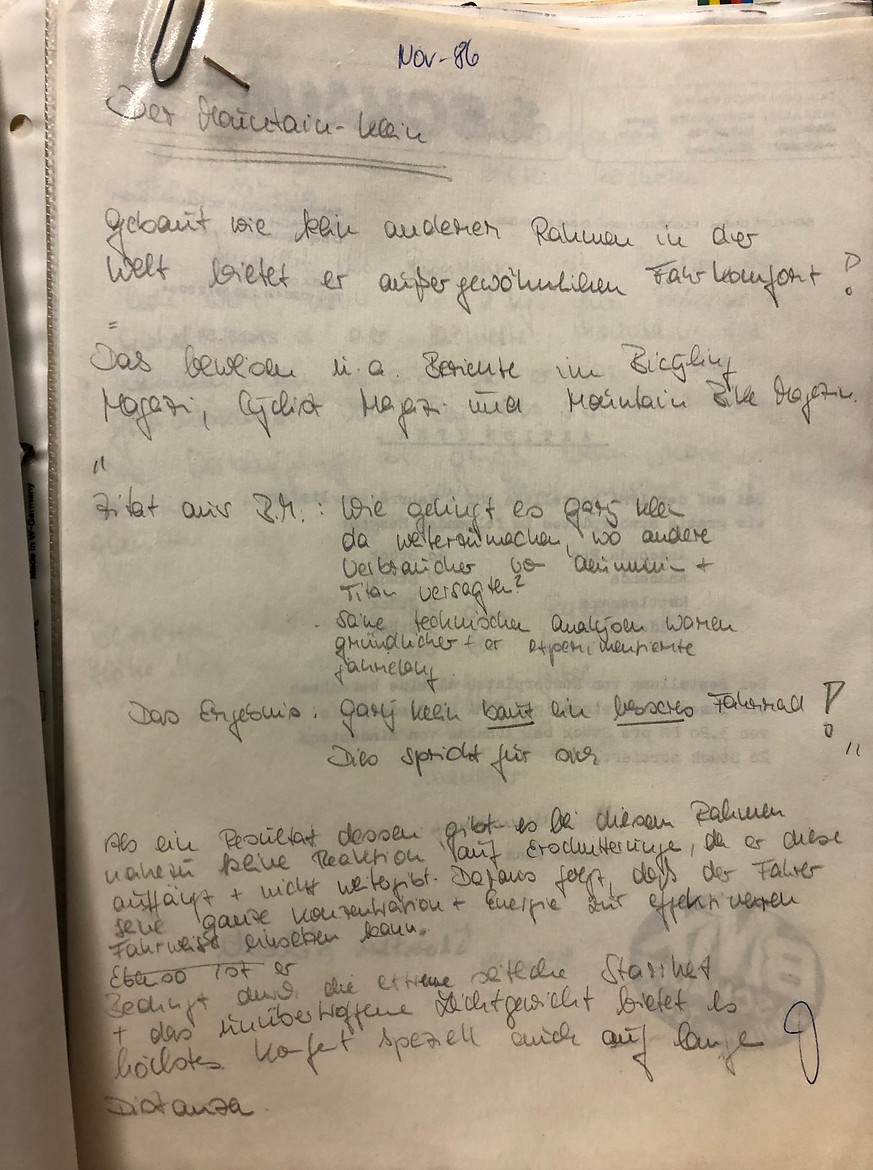 Nov-86
Der Mountain-Klein
gebaut wie kein anderer Rahmen in der
Welt bietet er außergewöhnlichen Fahrkomfort !
=
Das beweisen u.a. Berichte im Bicycling
Magazi, Cyclist Magazi und Mountain Bike Magazin.
"
Zitat aus B.M.: Wie gelingt es Gary Klein
da weiterzumachen, wo andere
Verbraucher vo Aluminium +
Titan versagten?
Seine technischen Analysen waren
gründlicher + er experimentierte
jahrelang.
Das Ergebnis: Gary Klein baut ein besseres Fahrrad !
Dies spricht für sich "
Als ein Resultat dessen gibt es bei diesem Rahmen
nahezu keine Reaktion auf Erschütterunge, da er diese
auffängt + nicht weitergibt. Daraus folgt, daß der Fahrer
seine ganze Konzentration + Energie zur effektiveren
Fahrweise einsetzen kann.
Ebenso ist er
Bedingt durch die extreme seitliche Starrheit
+ das unübertroffene Leichtgewicht bietet es
höchstes Komfort speziell auch auf lange
Distanza.
Made in W-Germany